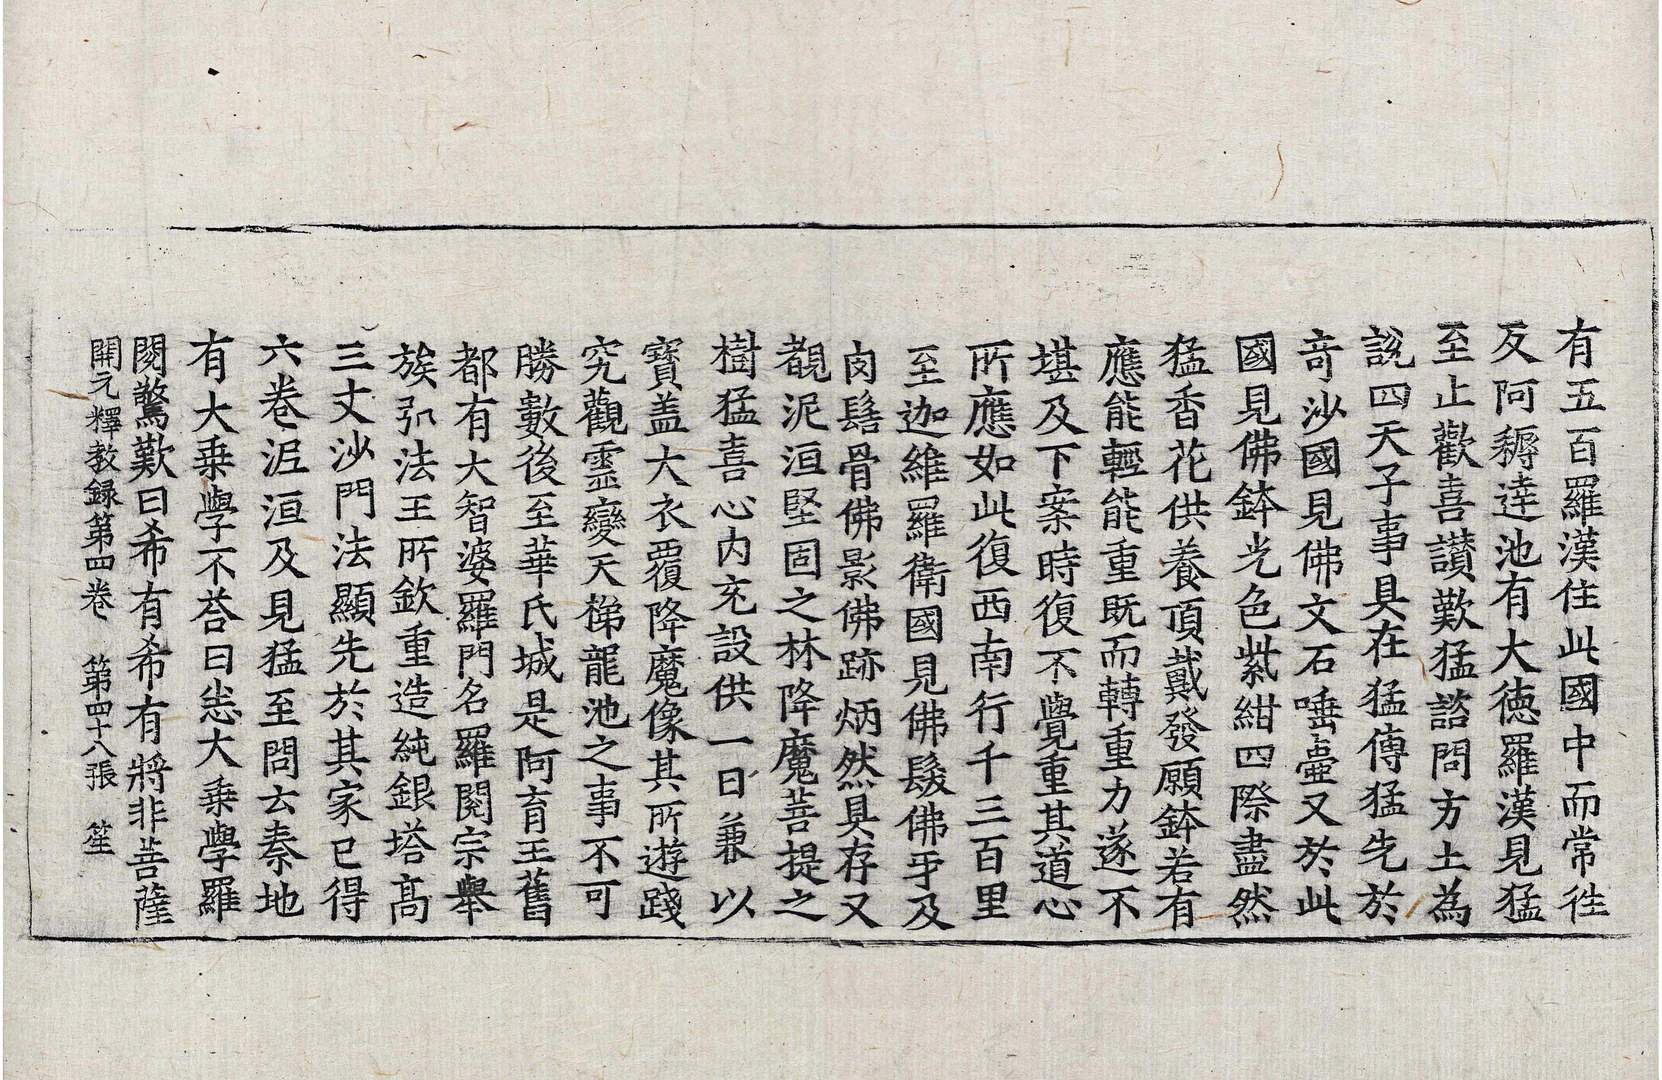 有五百羅漢住此國中而常往
反阿耨達池有大徳羅漢見猛
至止歡喜讃歎猛諮問方土為
說四天子事具在猛傳猛先於
竒沙國見佛文石唾壷又於此
國見佛鉢光色紫紺四際盡然
猛香花供養頂戴發願鉢若有
應能輕能重既而轉重力遂不
堪及下案時復不覺重其道心
所應如此復西南行千三百里
至迦維羅衛國見佛髮佛牙及
肉髻骨佛影佛跡炳然具存又
覩泥洹堅固之林降魔菩提之
樹猛喜心内充設供一日兼以
寶盖大衣覆降魔像其所遊踐
究觀靈變天梯龍池之事不可
勝數後至華氏城是阿育王舊
都有大智婆羅門名羅閱宗舉
族弘法王所欽重造純銀塔髙
三丈沙門法顯先於其家已得
六卷泥洹及見猛至問云秦地
有大乗學不荅曰悉大乗學羅
閱驚歎曰希有希有將非菩薩
開元釋教録第四卷 第四十八張 笙